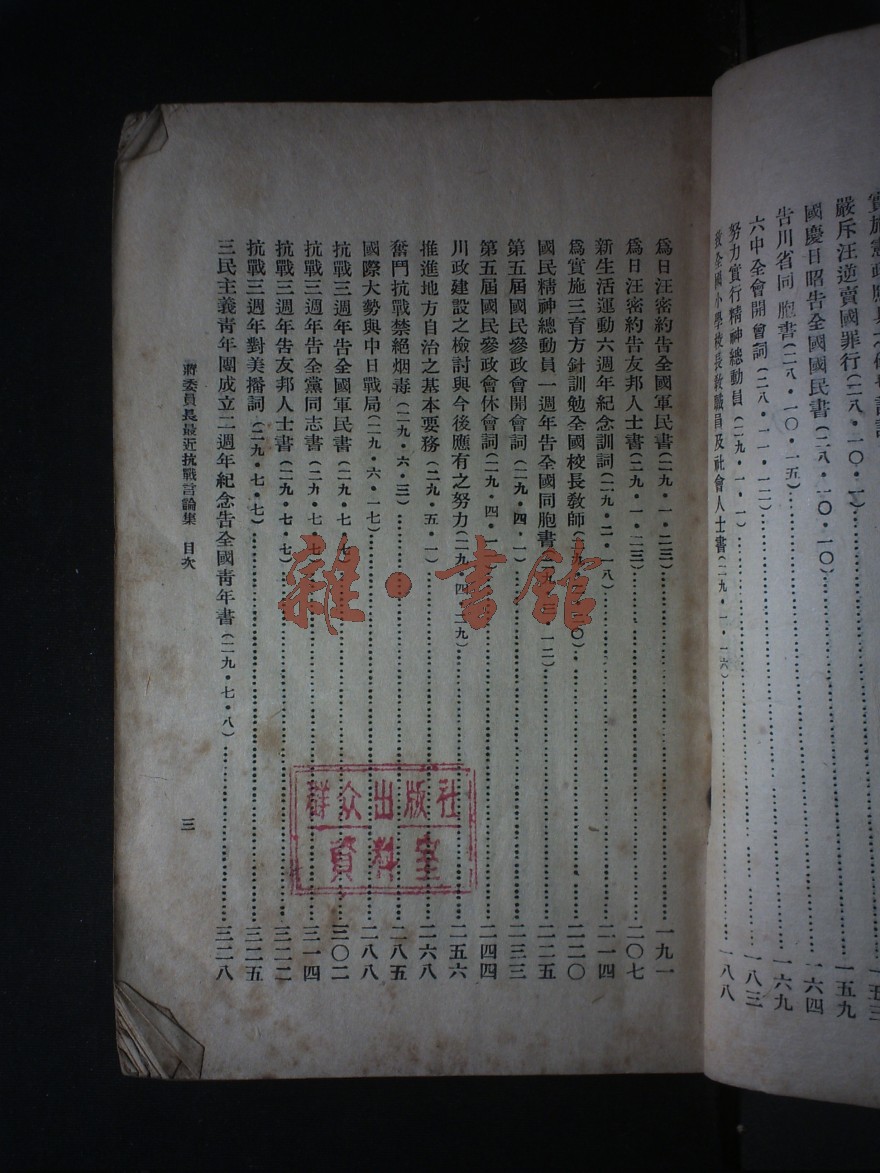 嚴斥汪逆賣國罪行(二八・一〇・一)……一五九
國慶日昭告全國國民書(二八・一〇・一〇)……一六四
告川省同胞書(二八・一〇・一五)……一六九
六中全會開會詞(二八・一一・一二)……一八三
努力實行精神總動員(二九・一・一)
致全國小學校長教職員及社會人士書(二九・一・一六)……一八八
爲日汪密約告全國軍民書(二九・一・二三)……一九一
爲日汪密約告友邦人士書(二九・一・二三)……二〇七
新生活運動六週年紀念訓詞(二九・二・一八)……二一四
爲實施三育方針訓勉全國校長教師(二九 〇)……二二〇
國民精神總動員一週年告全國同胞書(二九 一二)……二二五
第五屆國民參政會開會詞(二九・四・一)……二三三
第五屆國民參政會休會詞(二九・四・一……二四四
川政建設之檢討與今後應有之努力(二九・四・二九)……二五六
推進地方自治之基本要務(二九・五・一)……二六八
奮鬥抗戰禁絕烟毒(二九・六・三)……二八五
國際大勢與中日戰局(二九・六・一七)……二八八
抗戰三週年告全國軍民書(二九・七・七)……三〇二
抗戰三週年告全黨同志書(二九・七・七)……三一四
抗戰三週年告友邦人士書(二九・七・七)……三二二
抗戰三週年對美播詞(二九・七・七)……三二五
三民主義青年團成立二週年紀念告全國青年書(二九・七・八)……三二八
蔣委員長最近抗戰言論集 目次 三
雜・書館
群众出版社
資料室